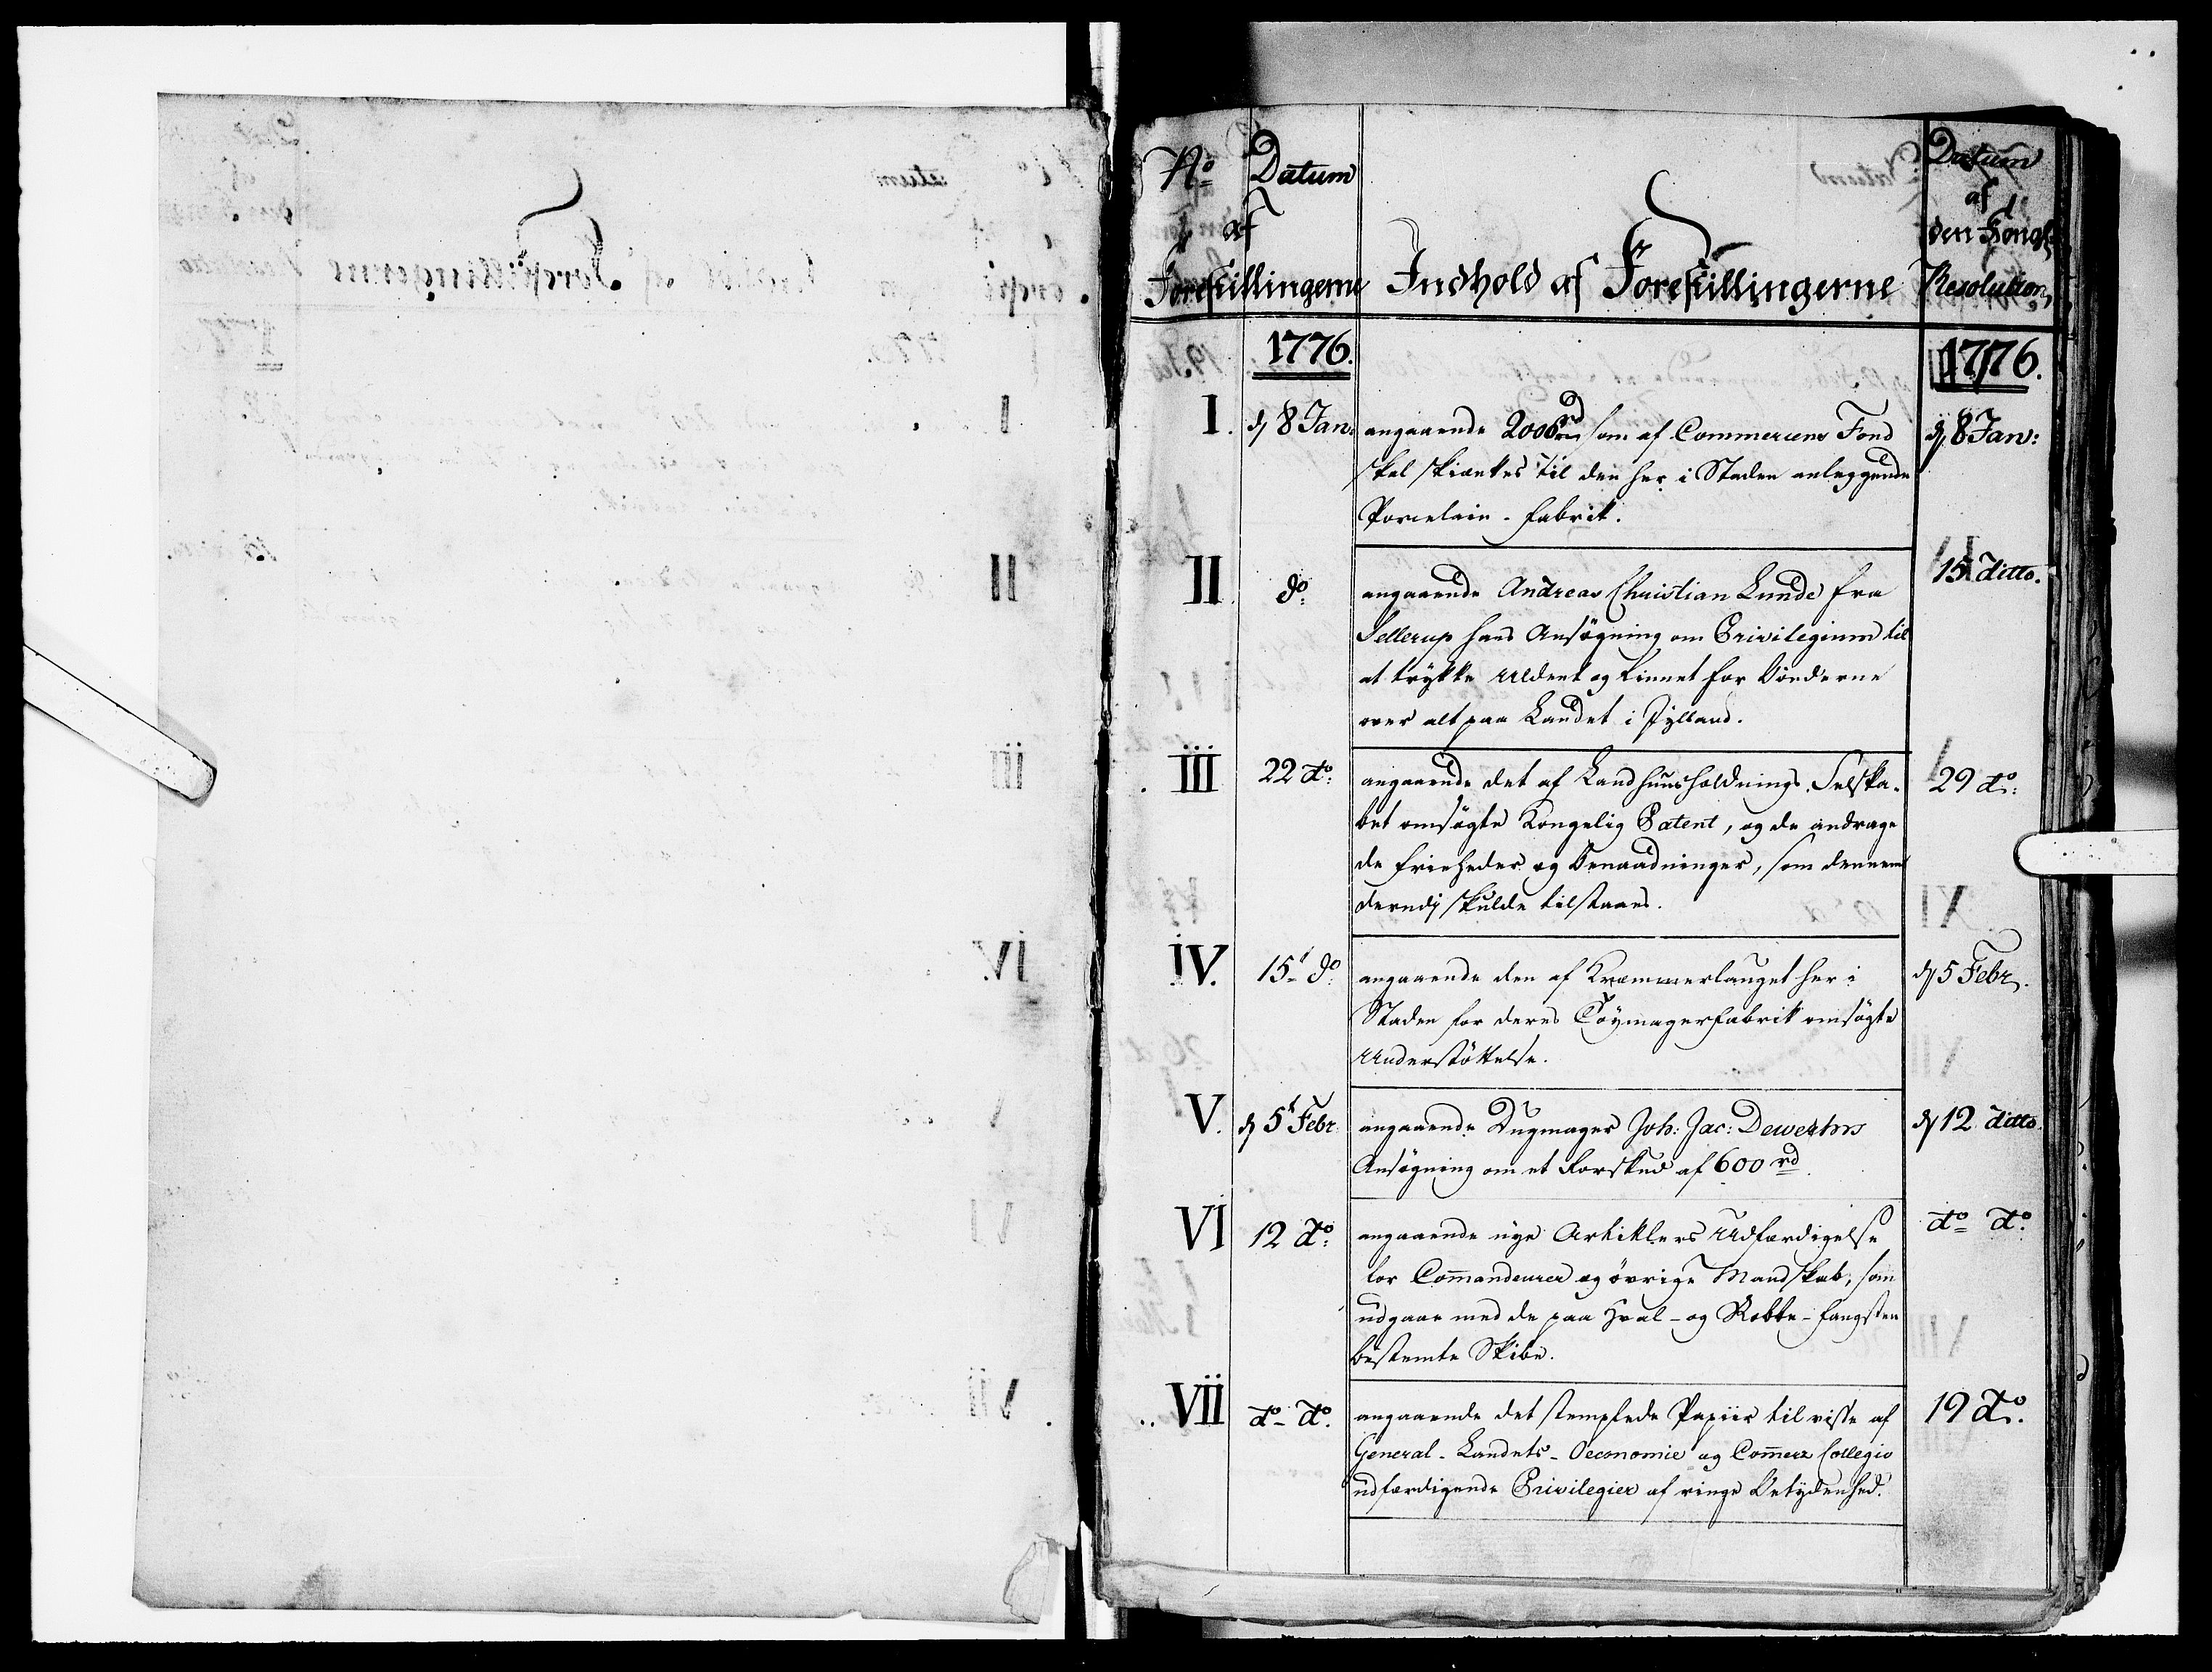 No Datum
af
Forestillingerne
Indhold af Forestillingerne
Datum
af
den Kongl
Resolution
1776.
1776.
I. d 8 Jan: angaaende 2000 rd som af Commerciens Fond d 8 Jan:
skal skiænkes til den her i Staden anleggende
Porcelain-Fabrik.
II do: angaaende Andreas Christian Lunde fra 15 ditto.
Sellerup hans Ansøgning om Privilegium til
at trykke uldent og Linnet for Bønderne
over alt paa Landet i Jylland.
III 22 do: angaaende det af Landhuusholdnings-Selska- 29 do:
bet ansøgte Kongelig Patent, og de andrage
de Friheder og Benaadninger, som dennem
derudj skulde tilstaaes.
IV. 15 do angaaende den af Kræmmerlauget her i d 5 Febr.
Staden for deres Töymagerfabrik ansøgte
Understøttelse.
V. d 5 Febr. angaaende Dugmager Joh: Jac: Dewertzes d 12 ditto.
Ansøgning om et Forskud af 600 rd.
VI 12 do: angaaende nye Artiklers Udfærdigelse do do.
for Commandeurer og øvrige Mandskab, som
udgaar med de paa Hval- og Robbe-fangsten
bestemte Skibe.
VII do- do. angaaende det stemplede Papiir til visse af 19 do.
General-Landets-Oeconomie og Commerz Collegio
udfærdigende Privilegier af ringe Betydenhed.